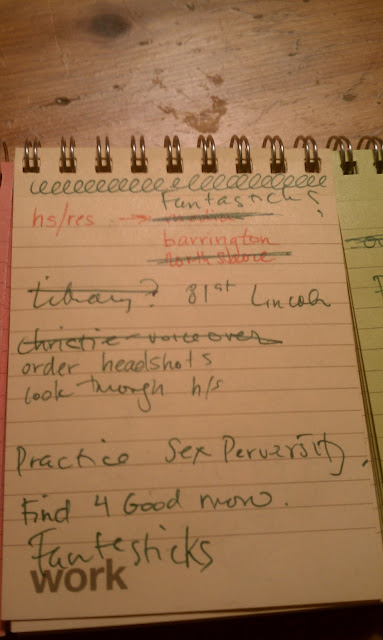 Fantasticks
hs/res →
barrington
north shore
Library? 81st Lincoln
christie voiceover
order headshots
look through h/s
Practice Sex Perversity,
Find 4 Good mono.
Fantesticks
work